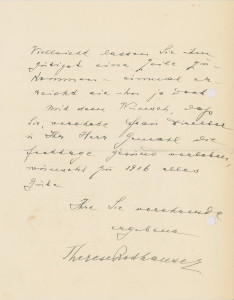 Vielleicht lassen Sie ihm
gütigst eine Zeile zu-
kommen – einmal er-
reicht sie ihn ja doch!
Mit dem Wunsch, daß
Sie, verehrte Frau Director
u Ihr Herr Gemahl die
Festtage gesund verleben,
wünscht für 1916 alles
Gute
Ihre Sie verehrende
ergebene
Therese Rothauser